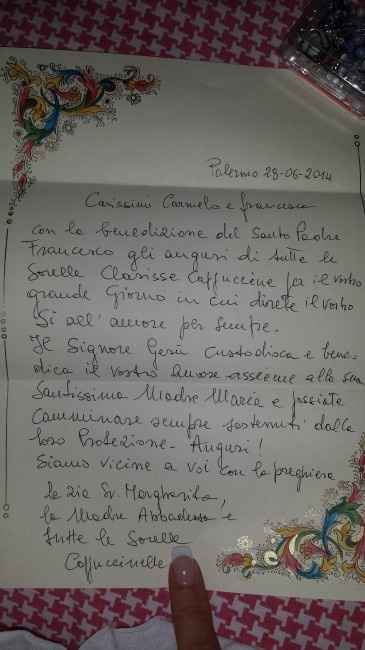 Palermo 28-06-2014
Carissimi Carmelo e Francesca
con la benedizione del Santo Padre
Francesco gli auguri di tutte le
Sorelle Clarisse Cappuccine per il vostro
grande Giorno in cui direte il vostro
Sì all'amore per sempre.
Il Signore Gesù Custodisca e bene-
dica il vostro Amore assieme alla sua
Santissima Madre Maria e possiate
Camminare sempre sostenuti dalla
loro Protezione - Auguri!
Siamo vicine a voi con la preghiera
la zia Sr. Margherita,
la Madre Abbadessa e
tutte le Sorelle
Cappuccinelle